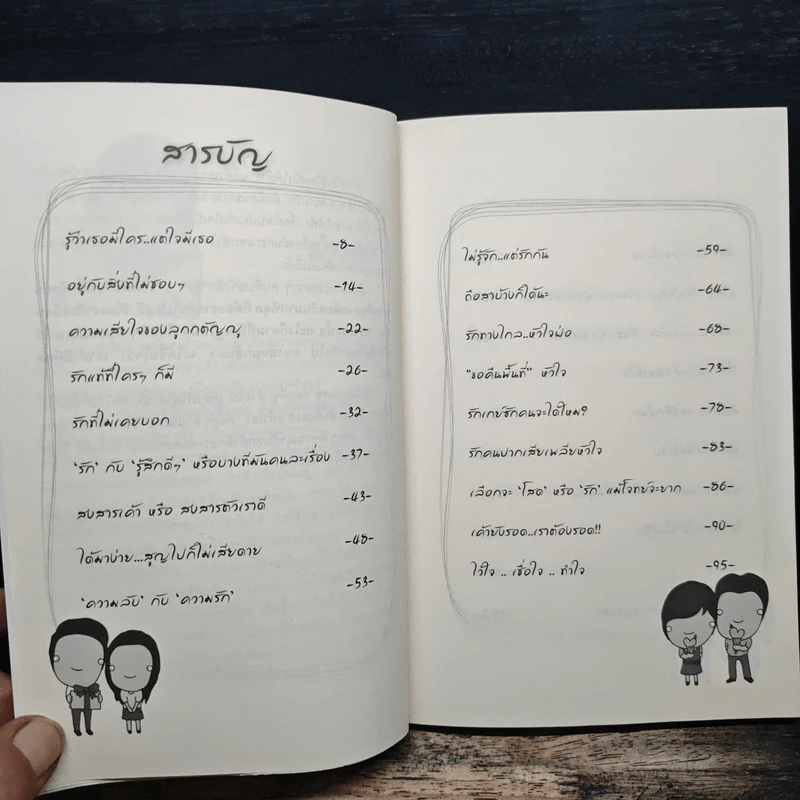 สารบัญ
รู้ว่าเธอมีใคร..แต่ใจมีเธอ -8-
อยู่กับสิ่งที่ไม่ชอบๆ -14-
ความเสียใจของลูกกตัญญู -22-
รักแท้ที่ใครๆ ก็มี -26-
รักที่ไม่เคยบอก -32-
'รัก' กับ 'รู้สึกดีๆ' หรือบางทีมันคนละเรื่อง -37-
สงสารเค้า หรือ สงสารตัวเราดี -43-
ได้มาง่าย...สูญไปก็ไม่เสียดาย -48-
'ความลับ' กับ 'ความรัก' -53-
ไม่รู้จัก..แต่รักกัน -59-
ถือสาบ้างก็ได้นะ -64-
รักทางไกล..หัวใจพ่อ -68-
"ขอคืนพื้นที่" หัวใจ -73-
รักเกย์ซักคนจะได้ไหม? -78-
รักคนปากเสียเพลียหัวใจ -83-
เลือกจะ 'โสด' หรือ 'รัก' แม้โจทย์จะยาก -86-
เค้ายังรอด..เราต้องรอด!! -90-
ไว้ใจ .. เชื่อใจ .. ทำใจ -95-